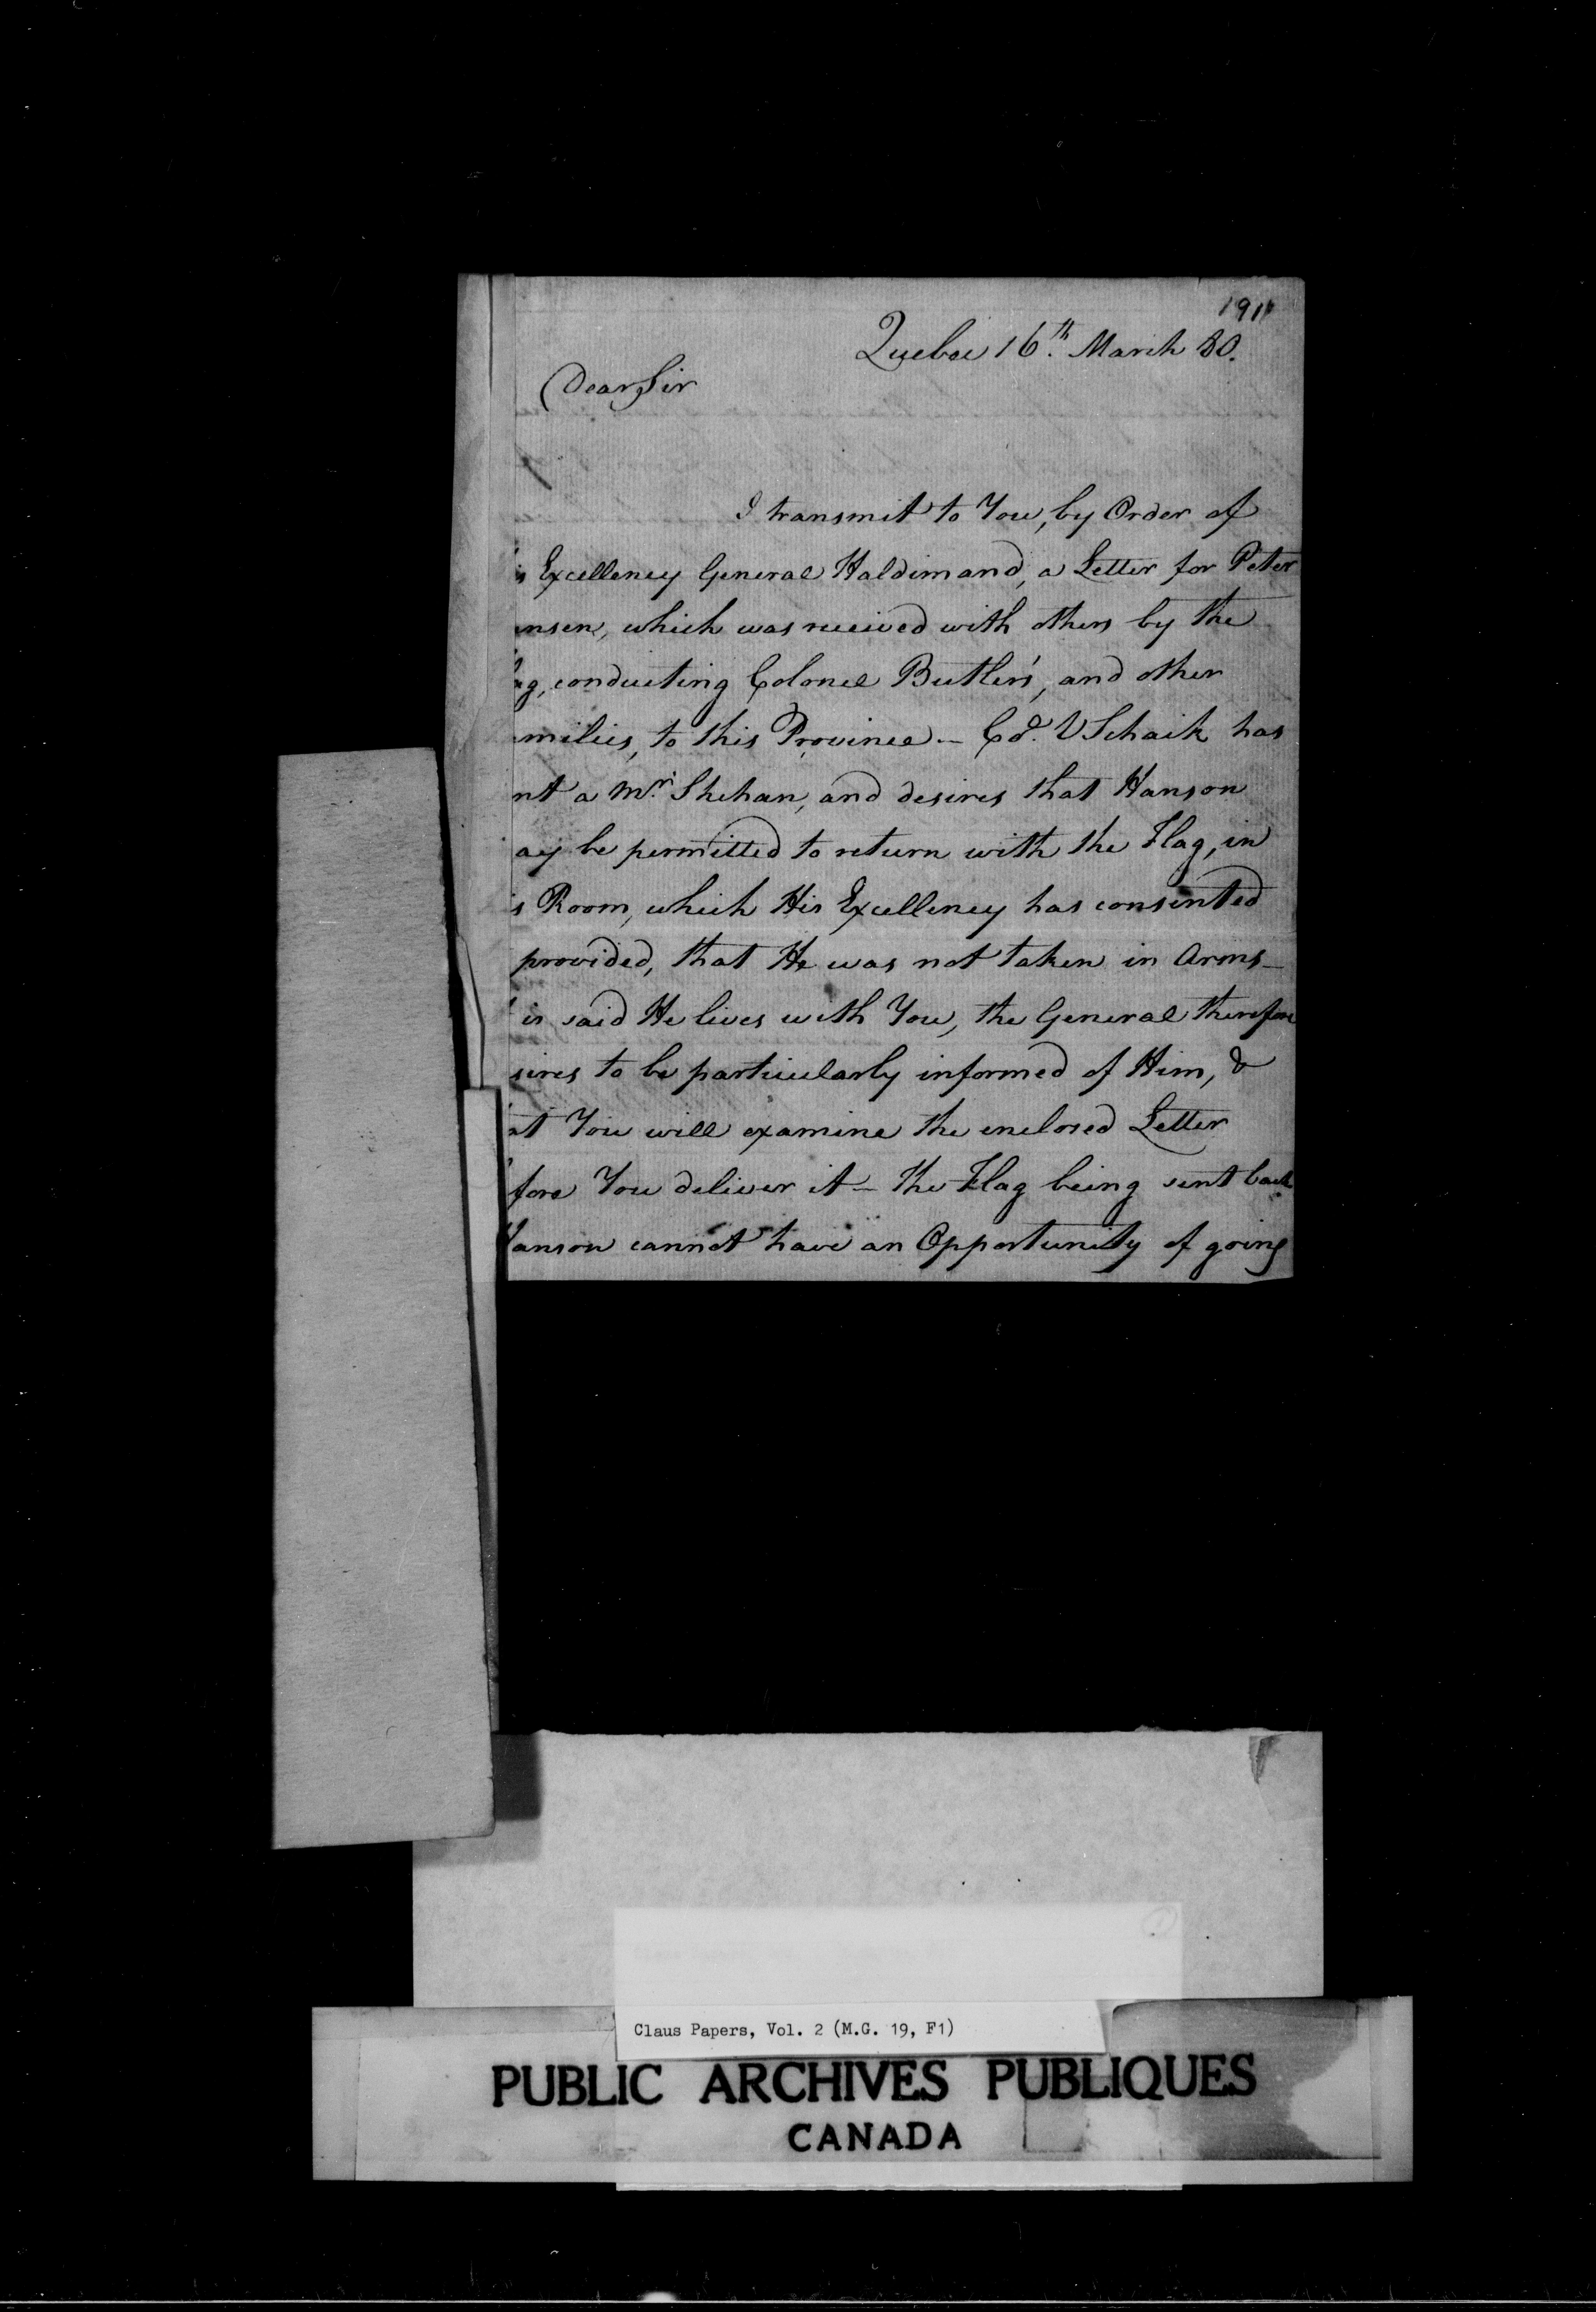 191
Quebec 16th. March 80.
Dear Sir
I transmit to You, by Order of
s Excellency General Haldimand, a Letter for Peter
ansen, which was received with others by the
ag, conducting Colonel Butler's, and other
milies, to this Province — Col. V Schaik has
nt a Mr. Shehan, and desires that Hanson
ay be permitted to return with the Flag, in
s Room, which His Excellency has consented
provided, that He was not taken in Arms —
is said He lives with You, the General therefore
sires to be particularly informed of Him, &
at You will examine the enclosed Letter
fore You deliver it — the Flag being sent back
Hanson cannot have an Opportunity of going
Claus Papers, Vol. 2 (M.G. 19, F1)
PUBLIC ARCHIVES PUBLIQUES
CANADA